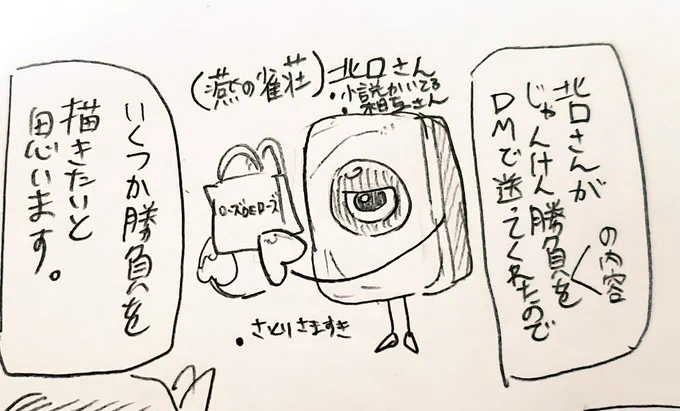 北口さんが
じゃんけん勝負を
の内容
DMで送ってくれたので
北口さん
(燕の雀荘)
・小説かいてる
・相互さん
ローズDEローズ
・さとりさますき
いくつか勝負を
描きたいと
思います。